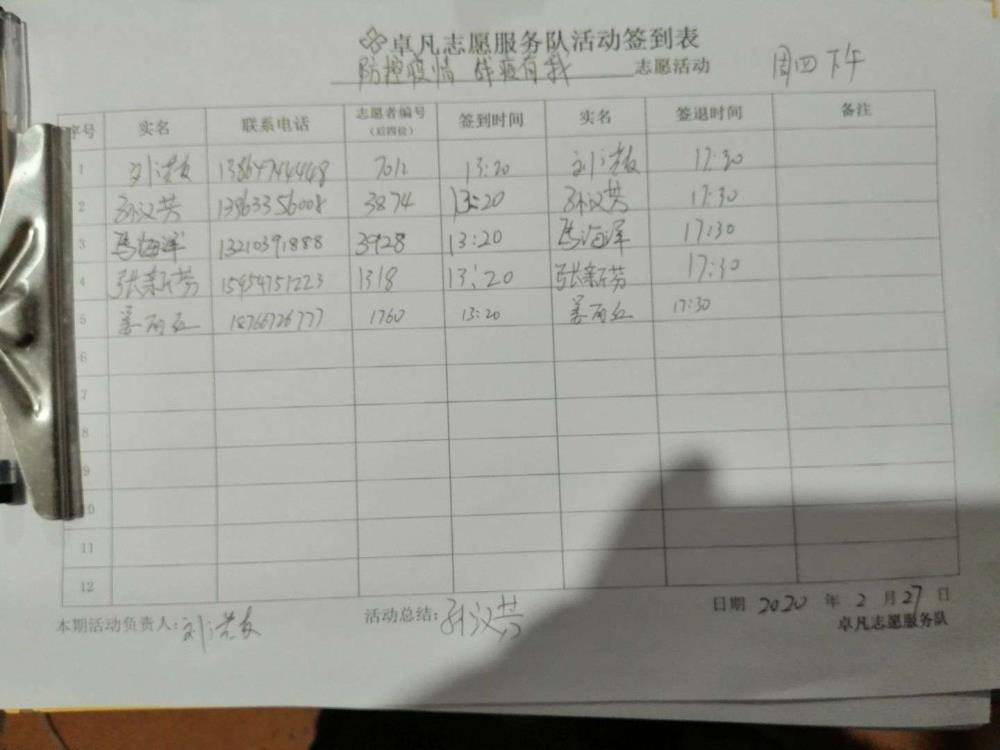 卓凡志愿服务队活动签到表
防控疫情 战疫有我 志愿活动 周四下午
序号 实名 联系电话 志愿者编号(后四位) 签到时间 实名 签退时间 备注
1 刘洪友 13864744448 7012 13:20 刘洪友 17:30
2 孙汉芳 13963356008 3874 13:20 孙汉芳 17:30
3 马海洋 13210391888 3928 13:20 马海洋 17:30
4 张新芳 15954751223 1318 13:20 张新芳 17:30
5 姜丽红 18766726777 1760 13:20 姜丽红 17:30
6
7
8
9
10
11
12
本期活动负责人:刘洪友 活动总结:孙汉芳 日期 2020 年 2 月 27 日
卓凡志愿服务队